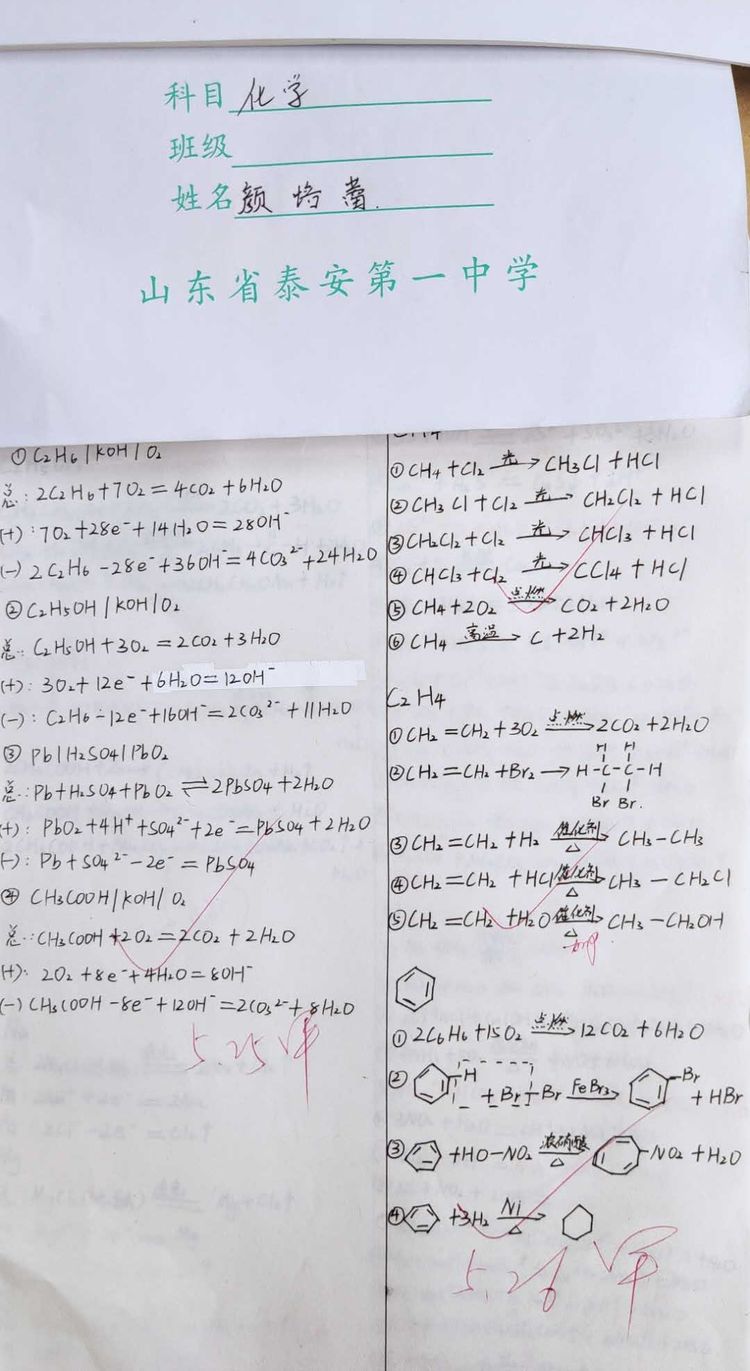 科目 化学
班级
姓名 颜培蕾.
山东省泰安第一中学
① C2H6 | KOH | O2
总: 2C2H6 + 7O2 = 4CO2 + 6H2O
(+): 7O2 + 28e⁻ + 14H2O = 28OH⁻
(-) 2C2H6 - 28e⁻ + 36OH⁻ = 4CO3²⁻ + 24H2O
② C2H5OH | KOH | O2
总: C2H5OH + 3O2 = 2CO2 + 3H2O
(+): 3O2 + 12e⁻ + 6H2O = 12OH⁻
(-): C2H6 - 12e⁻ + 16OH⁻ = 2CO3²⁻ + 11H2O
③ Pb | H2SO4 | PbO2
总: Pb + H2SO4 + PbO2 ⇌ 2PbSO4 + 2H2O
(+): PbO2 + 4H⁺ + SO4²⁻ + 2e⁻ = PbSO4 + 2H2O
(-): Pb + SO4²⁻ - 2e⁻ = PbSO4
④ CH3COOH | KOH | O2
总: CH3COOH + 2O2 = 2CO2 + 2H2O
(+): 2O2 + 8e⁻ + 4H2O = 8OH⁻
(-) CH3COOH - 8e⁻ + 12OH⁻ = 2CO3²⁻ + 8H2O
5.25
① CH4 + Cl2 光→ CH3Cl + HCl
② CH3Cl + Cl2 光→ CH2Cl2 + HCl
③ CH2Cl2 + Cl2 光→ CHCl3 + HCl
④ CHCl3 + Cl2 光→ CCl4 + HCl
⑤ CH4 + 2O2 点燃→ CO2 + 2H2O
⑥ CH4 高温→ C + 2H2
C2H4
① CH2=CH2 + 3O2 点燃→ 2CO2 + 2H2O
H H
② CH2=CH2 + Br2 → H-C-C-H
Br Br.
③ CH2=CH2 + H2 催化剂△→ CH3-CH3
④ CH2=CH2 + HCl 催化剂△→ CH3-CH2Cl
⑤ CH2=CH2 + H2O 催化剂△→ CH3-CH2OH
① 2C6H6 + 15O2 点燃→ 12CO2 + 6H2O
② -H + Br-Br FeBr3→ -Br + HBr
③ + HO-NO2 浓硝酸△→ -NO2 + H2O
④ + 3H2 Ni△→
5.26